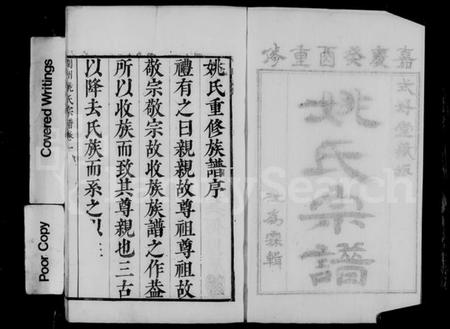 嘉慶癸酉重修
式好堂藏版
姚氏宗譜
姚氏重修族譜序
禮有之曰親親故尊祖尊祖故
敬宗敬宗故收族族譜之作蓋
所以收族而致其尊親也三古
以降去氏族而系之以
姚氏宗譜卷一
Covered Writings
Poor Copy